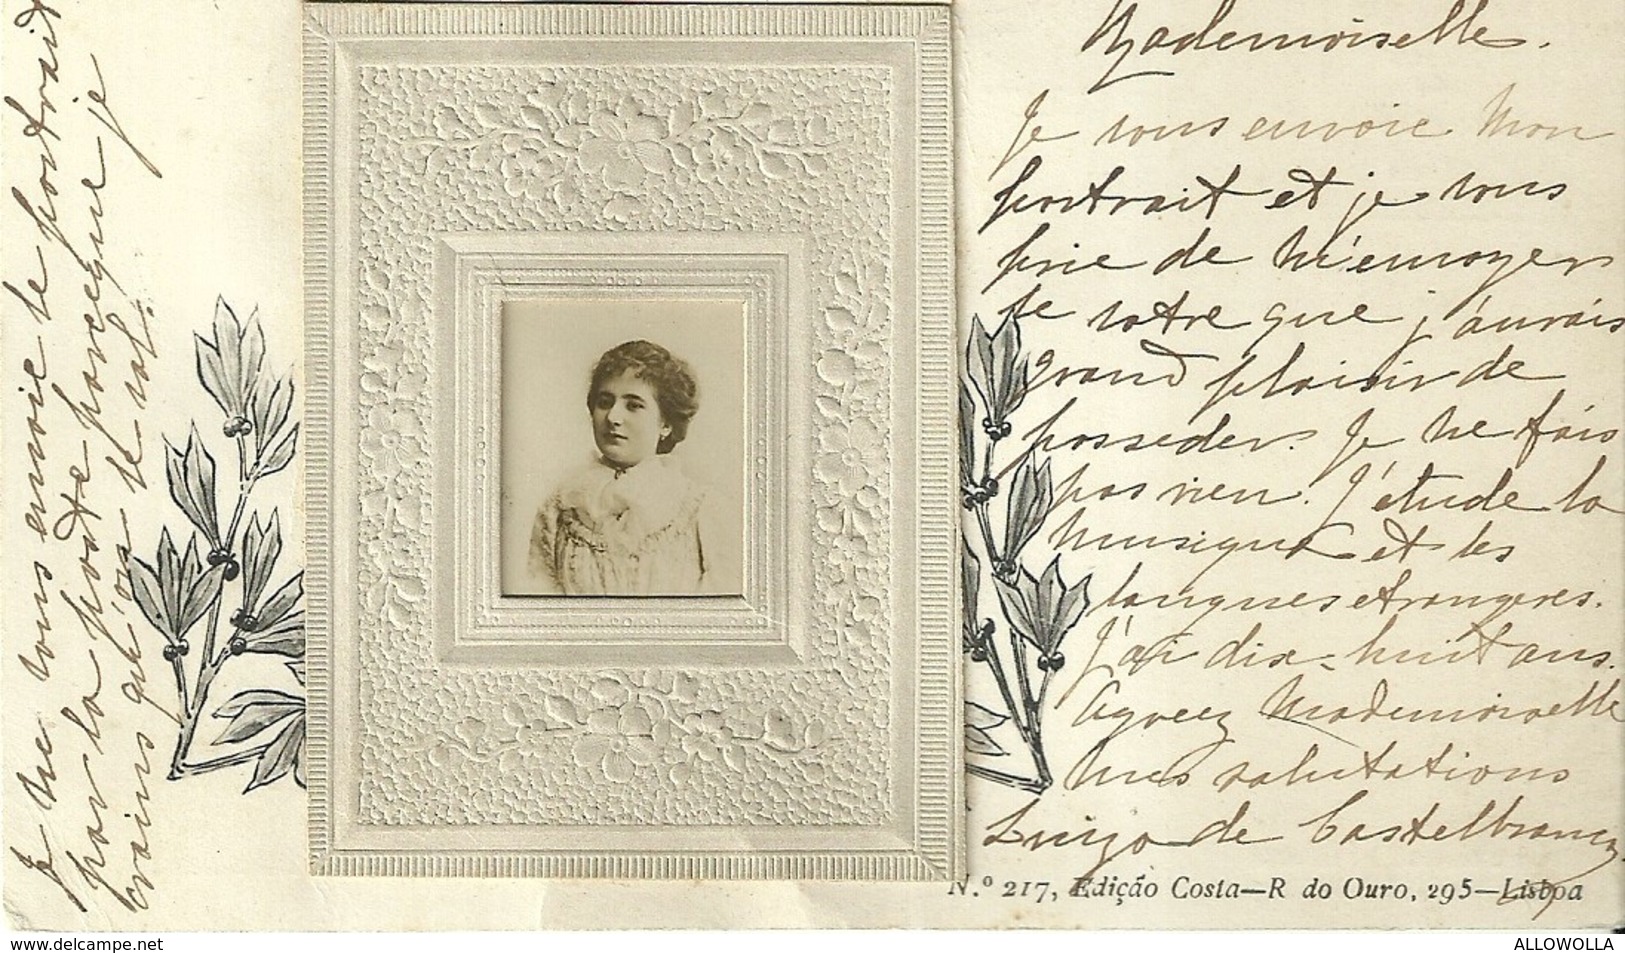 Mademoiselle.
Je vous envoie mon
portrait et je vous
prie de m'envoyer
le votre que j'aurais
grand plaisir de
posseder. Je ne fais
pas rien. J'étude la
musique et les
langues etrangeres.
J'ai dix-huit ans.
Agreez Mademoiselle
mes salutations
de Castelbranco
Je ne vous envoie le portrait
par la poste parceque je
crains qu'on le sal.
N.º 217, Edição Costa—R do Ouro, 295—Lisboa
www.delcampe.net
ALLOWOLLA